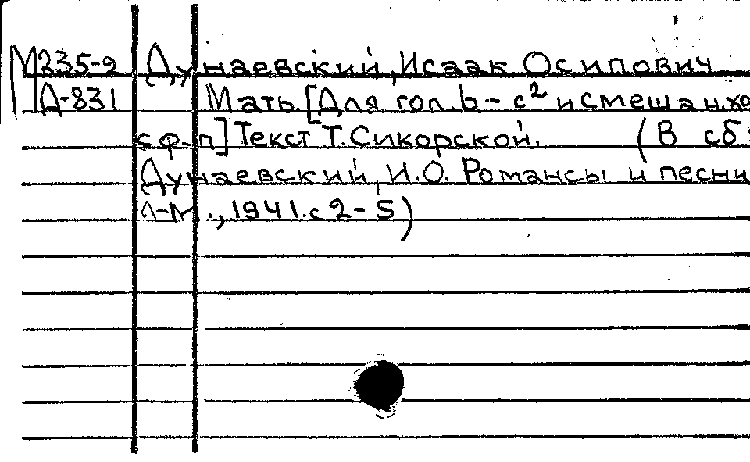 М235-9 Дунаевский, Исаак Осипович
Д-831 Мать [Для гол. b-c² и смешан. хо
с ф-п] Текст Т. Сикорской. (В сб:
Дунаевский, И.О. Романсы и песни
Л-М., 1941. с 2-5)